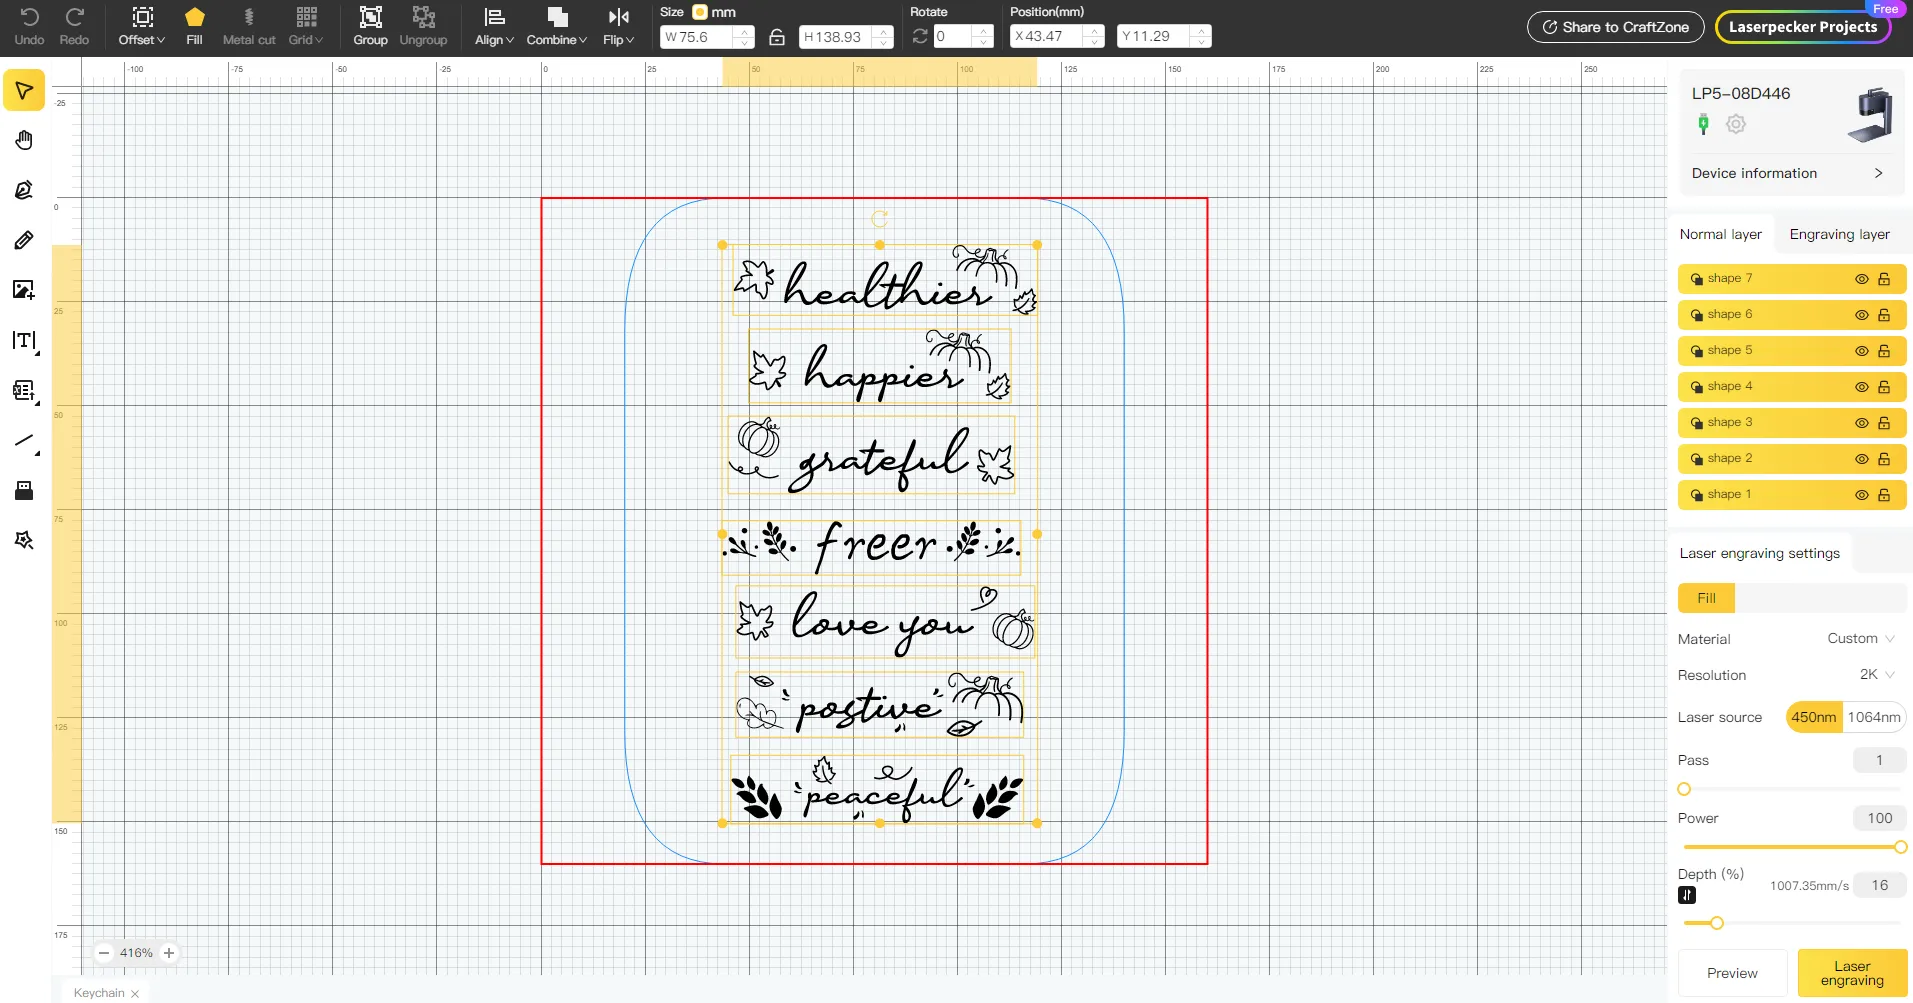 Undo Redo Offset Fill Metal cut Grid Group Ungroup Align Combine Flip
Size mm Rotate Position(mm)
W 75.6 H 138.93 0 X 43.47 Y 11.29
Share to CraftZone
Free
Laserpecker Projects
-100 -75 -50 -25 0 25 50 75 100 125 150 175 200 225 250
-25
0
25
50
75
100
125
150
175
healthier
happier
grateful
freer
love you
"postive"
"peaceful"
416%
Keychain
LP5-08D446
Device information
Normal layer Engraving layer
shape 7
shape 6
shape 5
shape 4
shape 3
shape 2
shape 1
Laser engraving settings
Fill
Material Custom
Resolution 2K
Laser source 450nm 1064nm
Pass 1
Power 100
Depth (%) 1007.35mm/s 16
Preview
Laser
engraving